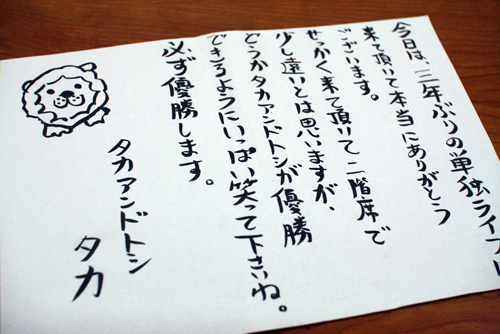 今日は、三年ぶりの単独ライブに
来て頂いて本当にありがとう
ございます。
せっかく来て頂いて二階席で
少し遠いとは思いますが、
どうかタカアンドトシが優勝
できるようにいっぱい笑って下さいね。
必ず優勝します。
タカアンドトシ
タカ